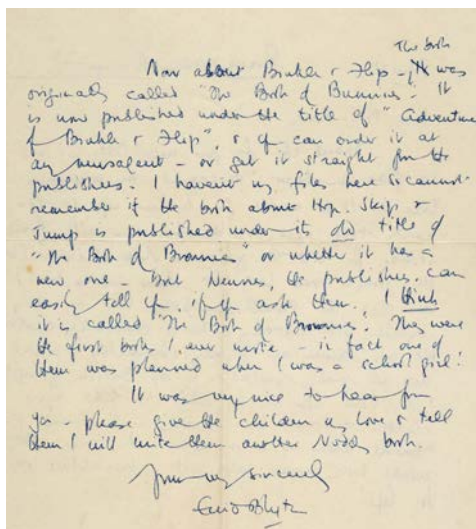 The book
Now about Binkle & Flip - it was
originally called "The Book of Bunnies". It
is now published under the title of "Adventures
of Binkle & Flip", & you can order it at
any newsagent - or get it straight from the
publishers. I haven't my files here so cannot
remember if the book about Hop, Skip &
Jump is published under its old title of
"The Book of Brownies" or whether it has a
new one - But Newnes, the publishers, can
easily tell you, if you ask them. I think
it is called "The Book of Brownies". They were
the first books I ever wrote - in fact one of
them was planned when I was a school girl!
It was very nice to hear from
you - please give the children my love & tell
them I will write them another Noddy book.
Yours very sincerely
Enid Blyton